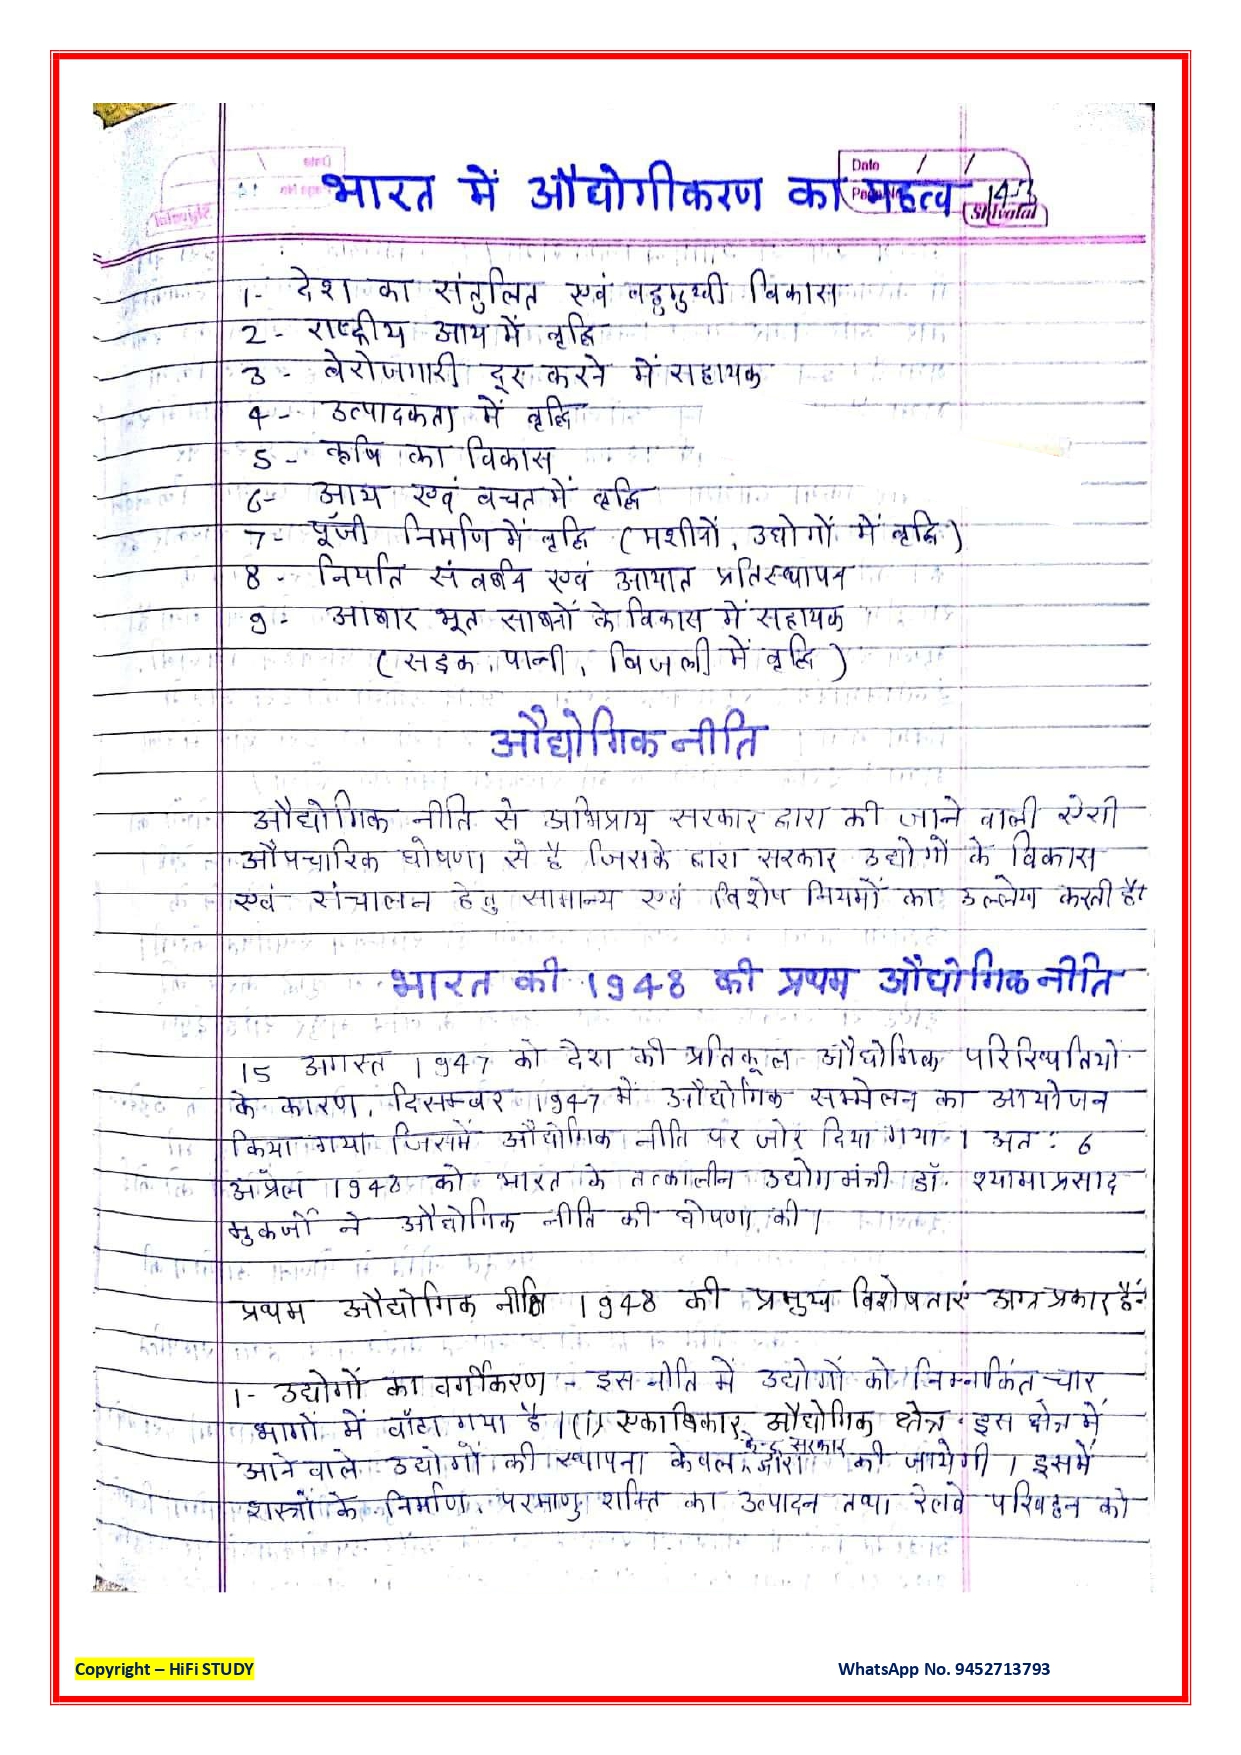 Date
भारत में औद्योगीकरण का महत्व
Shivalal
1- देश का संतुलित एवं बहुमुखी विकास
2- राष्ट्रीय आय में वृद्धि
3- बेरोजगारी दूर करने में सहायक
4- उत्पादकता में वृद्धि
5- कृषि का विकास
6- आय एवं बचत में वृद्धि
7- पूँजी निर्माण में वृद्धि (मशीनों, उद्योगों में वृद्धि)
8- निर्यात संवर्धन एवं आयात प्रतिस्थापन
9- आधार भूत साधनों के विकास में सहायक
(सड़क, पानी, बिजली में वृद्धि)
औद्योगिक नीति
औद्योगिक नीति से अभिप्राय सरकार द्वारा की जाने वाली ऐसी
औपचारिक घोषणा से है जिसके द्वारा सरकार उद्योगों के विकास
एवं संचालन हेतु सामान्य एवं विशेष नियमों का उल्लेख करती है।
भारत की 1948 की प्रथम औद्योगिक नीति
15 अगस्त 1947 को देश की प्रतिकूल औद्योगिक परिस्थितियों
के कारण, दिसम्बर 1947 में औद्योगिक सम्मेलन का आयोजन
किया गया जिसमें औद्योगिक नीति पर जोर दिया गया। अत: 6
अप्रैल 1948 को भारत के तत्कालीन उद्योग मंत्री डॉ. श्यामा प्रसाद
मुकर्जी ने औद्योगिक नीति की घोषणा की।
प्रथम औद्योगिक नीति 1948 की प्रमुख विशेषताएं अग्र प्रकार हैं-
1- उद्योगों का वर्गीकरण - इस नीति में उद्योगों को निम्नांकित चार
भागों में बाँटा गया है। (i) एकाधिकार औद्योगिक क्षेत्र - इस क्षेत्र में
आने वाले उद्योगों की स्थापना केवल केन्द्र सरकार द्वारा की जायेगी। इसमें
शस्त्रों के निर्माण, परमाणु शक्ति का उत्पादन तथा रेलवे परिवहन को
Copyright – HiFi STUDY
WhatsApp No. 9452713793